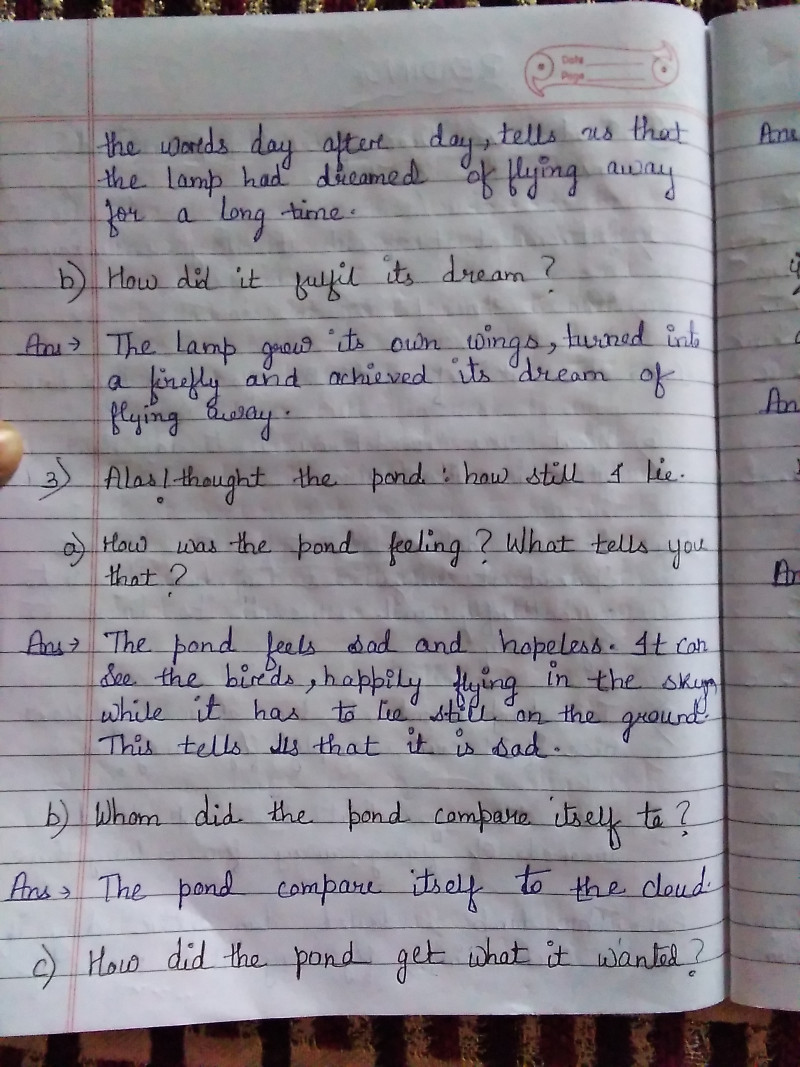 Date
Page
the words day after day, tells us that
the lamp had dreamed of flying away
for a long time.
b) How did it fulfil its dream?
Ans → The lamp grow its own wings, turned into
a firefly and achieved its dream of
flying away.
3) Alas! thought the pond : how still I lie.
a) How was the pond feeling? What tells you
that?
Ans → The pond feels sad and hopeless. It can
See the birds, happily flying in the sky,
while it has to lie still on the ground.
This tells us that it is sad.
b) Whom did the pond compare itself to?
Ans → The pond compare itself to the cloud.
c) How did the pond get what it wanted?
Ans
An
An